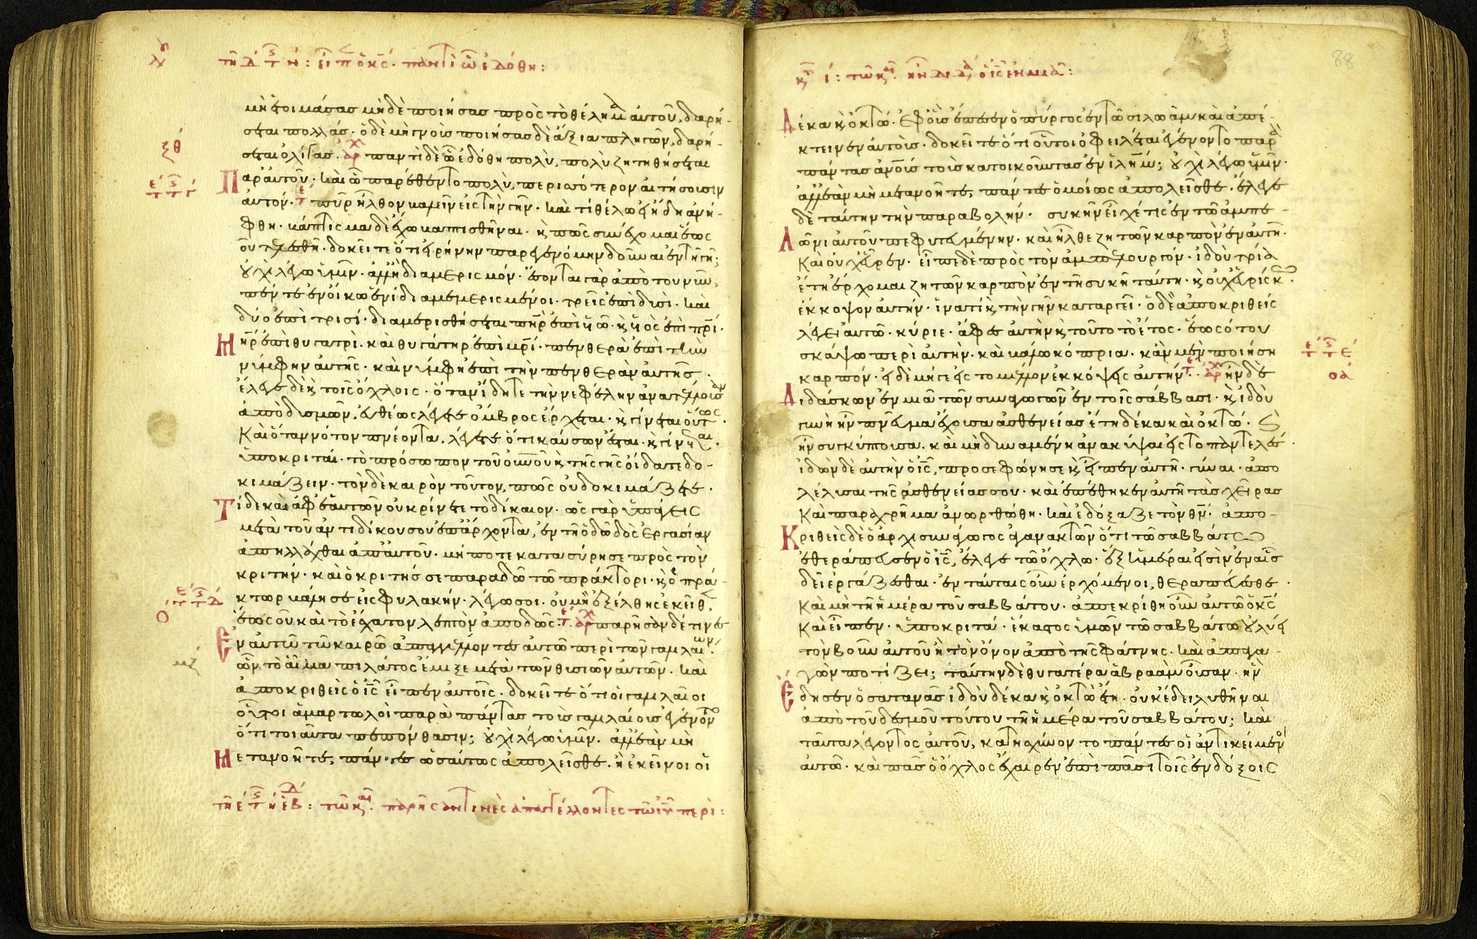 τῆ δ τ η: εἶπεν ὁ κς· παντὶ ὧ ἐδόθη:
μὴ ἑτοιμάσας μηδὲ ποιήσας πρὸς τὸ θέλημα αὐτοῦ, δαρή-
σεται πολλάς· ὁ δὲ μὴ γνοὺς ποιήσας δὲ ἄξια πληγῶν, δαρή-
ξθ
σεται ὀλίγας· ἀρχ παντὶ δὲ ὧ ἐδόθη πολὺ, πολὺ ζητηθήσεται
Παρ' αὐτοῦ· καὶ ὧ παρέθεντο πολὺ, περισσότερον αἰτήσουσιν
αὐτόν· τε πῦρ ἦλθον βαλεῖν εἰς τὴν γῆν· καὶ τί θέλω εἰ ἤδη ἀνή-
φθη· βάπτισμα δὲ ἔχω βαπτισθῆναι· κ πῶς συνέχομαι ἕως
οὗ τελεσθῆ· δοκεῖτε ὅτι εἰρήνην παρεγενόμην δοῦναι ἐν τῆ γῆ;
οὐχὶ λέγω ὑμῖν· ἀλλ' ἢ διαμερισμόν· ἔσονται γὰρ ἀπὸ τοῦ νῦν
πέντε ἐν οἴκω ἑνὶ διαμεμερισμένοι· τρεῖς ἐπὶ δυσὶ· καὶ
δύο ἐπὶ τρισί· διαμερισθήσεται πηρ ἐπὶ υω· κ υος ἐπὶ πρι·
Μηρ ἐπὶ θυγατρί· καὶ θυγάτηρ ἐπὶ μρι· πενθερὰ ἐπὶ τὴν
νύμφην αὐτῆς· καὶ νύμφη ἐπὶ τὴν πενθερὰν αὐτῆς·
ἔλεγε δὲ κ τοῖς ὄχλοις· ὅταν ἴδητε τὴν νεφέλην ἀνατέλλουσαν
ἀπὸ δυσμῶν, εὐθέως λέγετε ὄμβρος ἔρχεται· κ γίνεται οὕτως·
Καὶ ὅταν νότον πνέοντα, λέγετε ὅτι καύσων ἔσται· κ γίνεται·
ὑποκριταί· τὸ πρόσωπον τοῦ οὐνοῦ κ τῆς γῆς οἴδατε δο-
κιμάζειν· τὸν δὲ καιρὸν τοῦτον, πῶς οὐ δοκιμάζετε·
Τί δὲ καὶ ἀφ' ἑαυτῶν οὐ κρίνετε τὸ δίκαιον· ὡς γὰρ ὑπάγεις
μετὰ τοῦ ἀντιδίκου σου ἐπ' ἄρχοντα, ἐν τῆ ὁδῶ δὸς ἐργασίαν
ἀπηλλάχθαι ἀπ' αὐτοῦ· μήποτε κατασύρη σε πρὸς τὸν
κριτήν· καὶ ὁ κριτής σε παραδῶ τῶ πράκτορι· κ ὁ πρά-
κτωρ βάλη σε εἰς φυλακήν· λέγω σοι· οὐ μὴ ἐξέλθης ἐκεῖθεν
ο
ἕως οὗ καὶ τὸ ἔσχατον λεπτὸν ἀποδῶς· τε ἀρχ παρῆσαν δέ τινες
Ἐν αὐτῶ τῶ καιρῶ ἀπαγγέλλοντες αὐτῶ περὶ τῶν γαλιλαίων
ὧν τὸ αἷμα πιλάτος ἔμιξε μετὰ τῶν θυσιῶν αὐτῶν· καὶ
ἀποκριθεὶς ὁ ις εἶπεν αὐτοῖς· δοκεῖτε ὅτι οἱ γαλιλαῖοι
οὗτοι ἁμαρτωλοὶ παρὰ πάντας τοὺς γαλιλαίους ἐγένοντο
ὅτι τοιαῦτα πεπόνθασιν; οὐχὶ λέγω ὑμῖν· ἀλλ' ἐὰν μὴ
Μετανοῆτε, πάντες ὡσαύτως ἀπολεῖσθε· ἢ ἐκεῖνοι οἱ
παρῆσάν τινὲς ἀπαγγέλλοντες τῶ ιυ περὶ:
88
Δέκα κ ὀκτώ· ἐφ' οὓς ἔπεσεν ὁ πύργος ἐν τῶ σιλωὰμ καὶ ἀπέ-
κτεινεν αὐτούς· δοκεῖτε ὅτι οὗτοι ὀφειλέται ἐγένοντο παρὰ
πάντας ανους τοὺς κατοικοῦντας ἐν ιλημ; οὐχὶ λέγω ὑμῖν·
ἀλλ' ἐὰν μὴ μετανοῆτε, πάντες ὁμοίως ἀπολεῖσθε· ἔλεγε
δὲ ταύτην τὴν παραβολήν· συκῆν εἶχέ τις ἐν τῶ ἀμπε-
Λῶνι αὐτοῦ πεφυτευμένην· καὶ ἦλθε ζητῶν καρπὸν ἐν αὐτῆ·
Καὶ οὐχ εὗρεν· εἶπε δὲ πρὸς τὸν ἀμπελουργόν· ἰδοὺ τρία
ἔτη ἔρχομαι ζητῶν καρπὸν ἐν τῆ συκῆ ταύτη· κ οὐχ εὑρίσκω·
ἔκκοψον αὐτήν· ἱνατί κ τὴν γῆν καταργεῖ· ὁ δὲ ἀποκριθεὶς
λέγει αὐτῶ· κύριε· ἄφες αὐτὴν κ τοῦτο τὸ ἔτος· ἕως ὅτου
σκάψω περὶ αὐτὴν· καὶ βάλω κόπρια· κἂν μὲν ποιήση
καρπόν· εἰ δὲ μήγε εἰς τὸ μέλλον ἐκκόψεις αὐτήν· τε ἀρχ ἦν δὲ
οα
Διδάσκων ἐν μιᾶ τῶν συναγωγῶν ἐν τοῖς σάββασι· κ ἰδοὺ
γυνὴ ἦν πνα ἔχουσα ἀσθενείας ἔτη δέκα καὶ ὀκτώ· κ
ἦν συγκύπτουσα· καὶ μὴ δυναμένη ἀνακύψαι εἰς τὸ παντελές·
ἰδὼν δὲ αὐτὴν ὁ ις, προσεφώνησε κ εἶπεν αὐτῆ· γύναι· ἀπο-
λέλυσαι τῆς ἀσθενείας σου· καὶ ἐπέθηκεν αὐτῆ τὰς χεῖρας
Καὶ παραχρῆμα ἀνωρθώθη· καὶ ἐδόξαζε τὸν θν· ἀπο-
Κριθεὶς δὲ ὁ ἀρχισυνάγωγος ἀγανακτῶν ὅτι τῶ σαββάτω
ἐθεράπευσεν ὁ ις, ἔλεγε τῶ ὄχλω· ἓξ ἡμέραι εἰσὶν ἐν αἷς
δεῖ ἐργάζεσθαι· ἐν ταύταις οὖν ἐρχόμενοι, θεραπεύεσθε·
Καὶ μὴ τῆ ἡμέρα τοῦ σαββάτου· ἀπεκρίθη οὖν αὐτῶ ὁ κς
Καὶ εἶπεν· ὑποκριτά· ἕκαστος ὑμῶν τῶ σαββάτω οὐ λύει
τὸν βοῦν αὐτοῦ ἢ τὸν ὄνον ἀπὸ τῆς φάτνης· καὶ ἀπαγα-
γὼν ποτίζει; ταύτην δὲ θυγατέρα ἀβραὰμ οὖσαν· ἣν
Ἔδησεν ὁ σατανᾶς ἰδοὺ δέκα κ ὀκτὼ ἔτη· οὐκ ἔδει λυθῆναι
ἀπὸ τοῦ δεσμοῦ τούτου τῆ ἡμέρα τοῦ σαββάτου; καὶ
ταῦτα λέγοντος αὐτοῦ, κατησχύνοντο πάντες οἱ ἀντικείμενοι
αὐτῶ· καὶ πᾶς ὁ ὄχλος ἔχαιρεν ἐπὶ πᾶσι τοῖς ἐνδόξοις